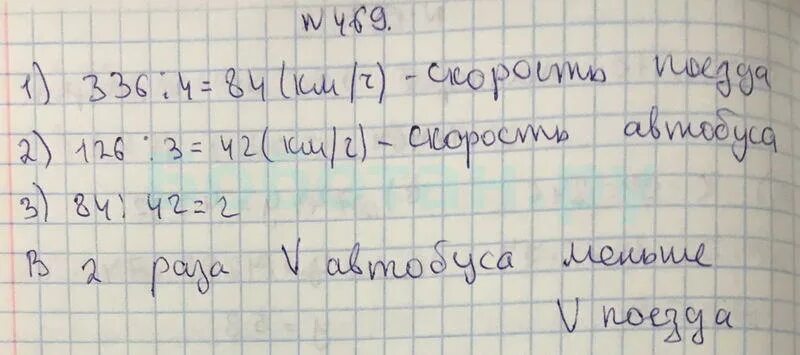 № 469.
1) 336:4=84 (км/ч) - скорость поезда
2) 126:3=42 (км/ч) - скорость автобуса
3) 84:42=2
В 2 раза V автобуса меньше
V поезда